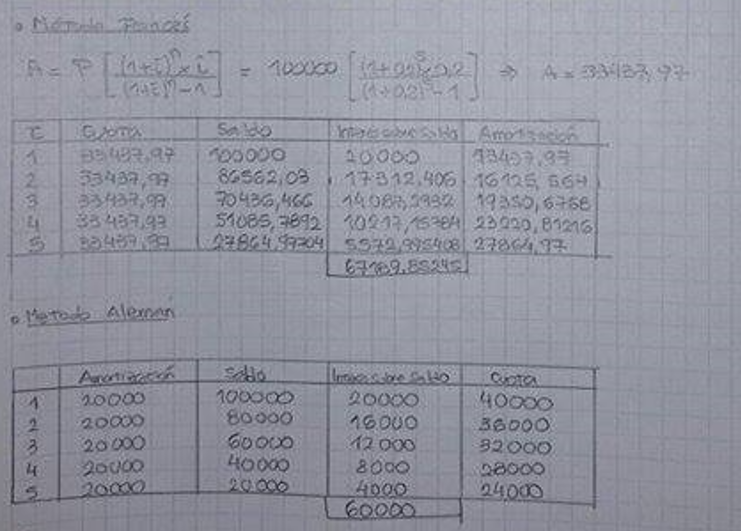 • Método Francés
A = P [ (1+i)^n × i / (1+i)^n - 1 ] = 100000 [ (1+0,2)^5 × 0,2 / (1+0,2)^5 - 1 ] ⇒ A = 33437,97
t Cuota Saldo Interés sobre Saldo Amortización
1 33437,97 100000 20000 13437,97
2 33437,97 86562,03 17312,406 16125,564
3 33437,97 70436,466 14087,2932 19350,6768
4 33437,97 51085,7892 10217,15784 23220,81216
5 33437,97 27864,97704 5572,995408 27864,97
67189,85245
• Metodo Alemán
Amortización Saldo Interes sobre Saldo Cuota
1 20000 100000 20000 40000
2 20000 80000 16000 36000
3 20000 60000 12000 32000
4 20000 40000 8000 28000
5 20000 20000 4000 24000
60000